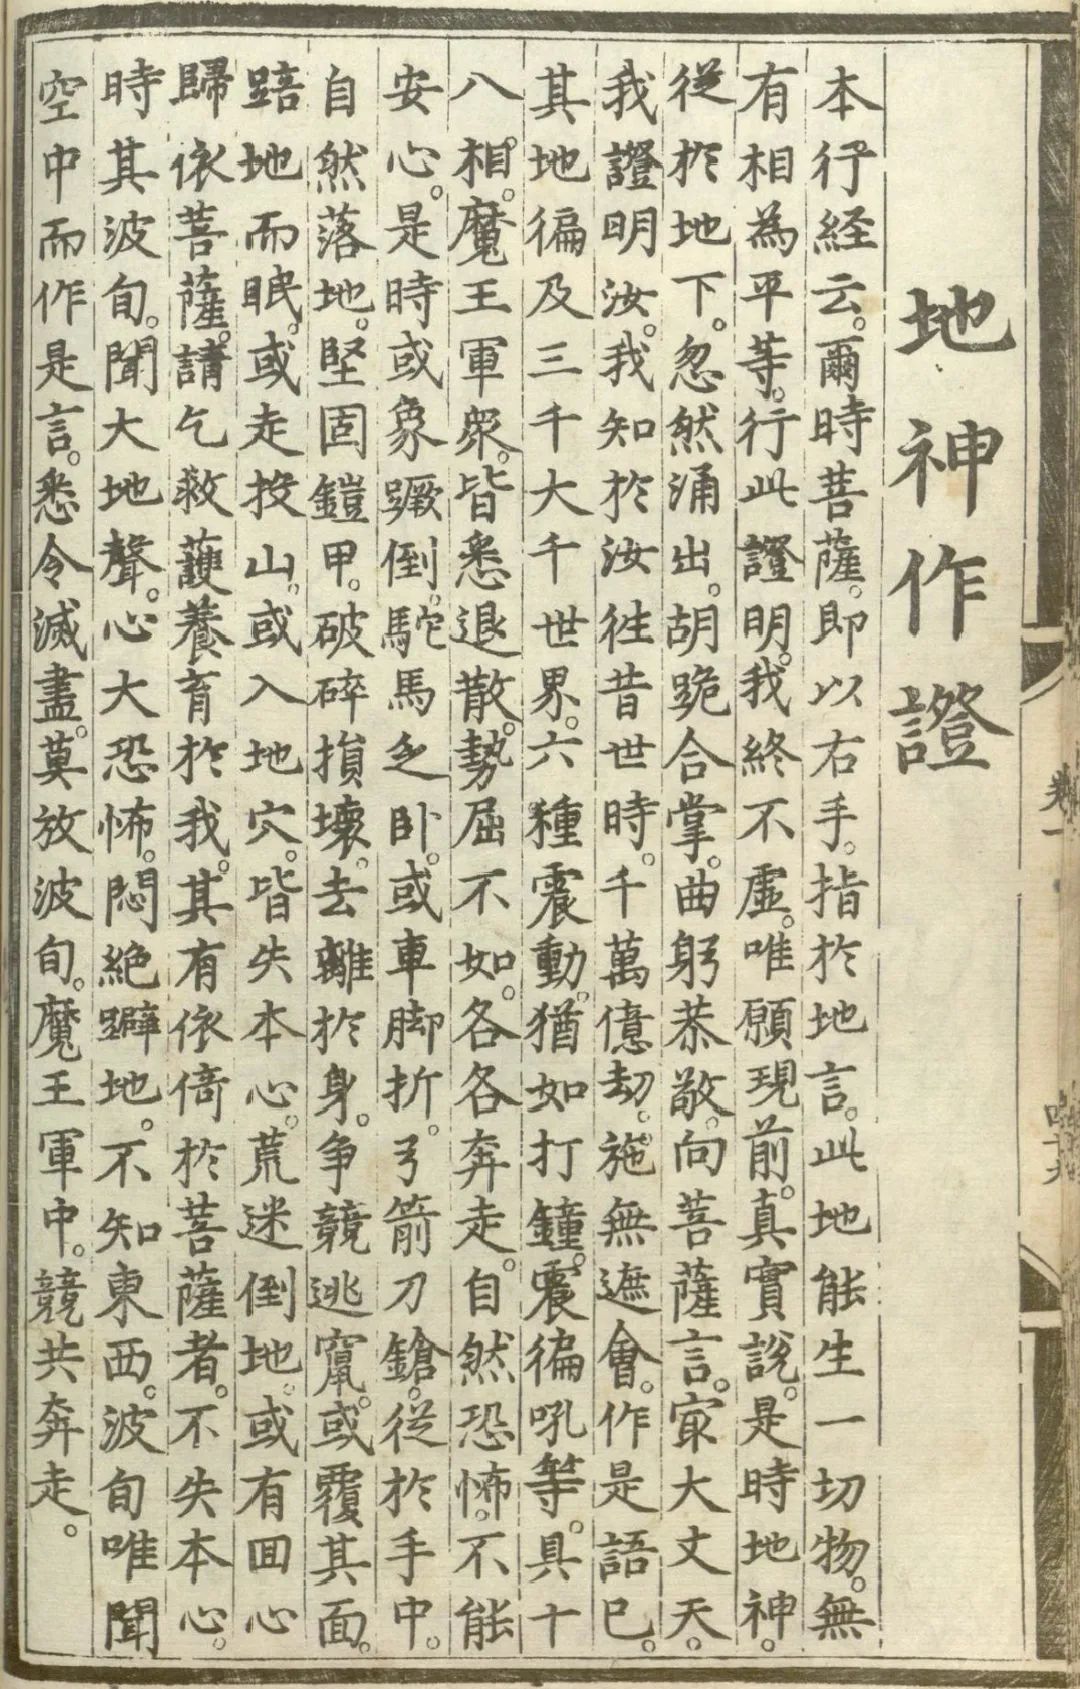 地神作證
本行経云。爾時菩薩。即以右手。指於地言。此地能生一切物。無
有相為平等。行此證明。我終不虛。唯願現前。真實說。是時地神。
從於地下。忽然涌出。胡跪合掌。曲躬恭敬。向菩薩言。㝡大丈天。
我證明汝。我知於汝徃昔世時。千萬億劫。施無遮會。作是語已。
其地徧及三千大千世界。六種震動。猶如打鐘。震徧吼等。具十
八相。魔王軍衆。皆悉退散。勢屈不如。各各奔走。自然恐怖。不能
安心。是時或象蹶倒。駝馬乏卧。或車脚折。弓箭刀鎗。從於手中。
自然落地。堅固鎧甲。破碎損壞。去離於身。争競逃竄。或覆其面。
踣地而眠。或走投山。或入地穴。皆失本心。荒迷倒地。或有回心
歸依菩薩。請乞救護養育於我。其有依倚於菩薩者。不失本心。
時其波旬。聞大地聲。心大恐怖。悶絶躃地。不知東西。波旬唯聞
空中而作是言。悉令滅盡。莫放波旬。魔王軍中。競共奔走。
卷一